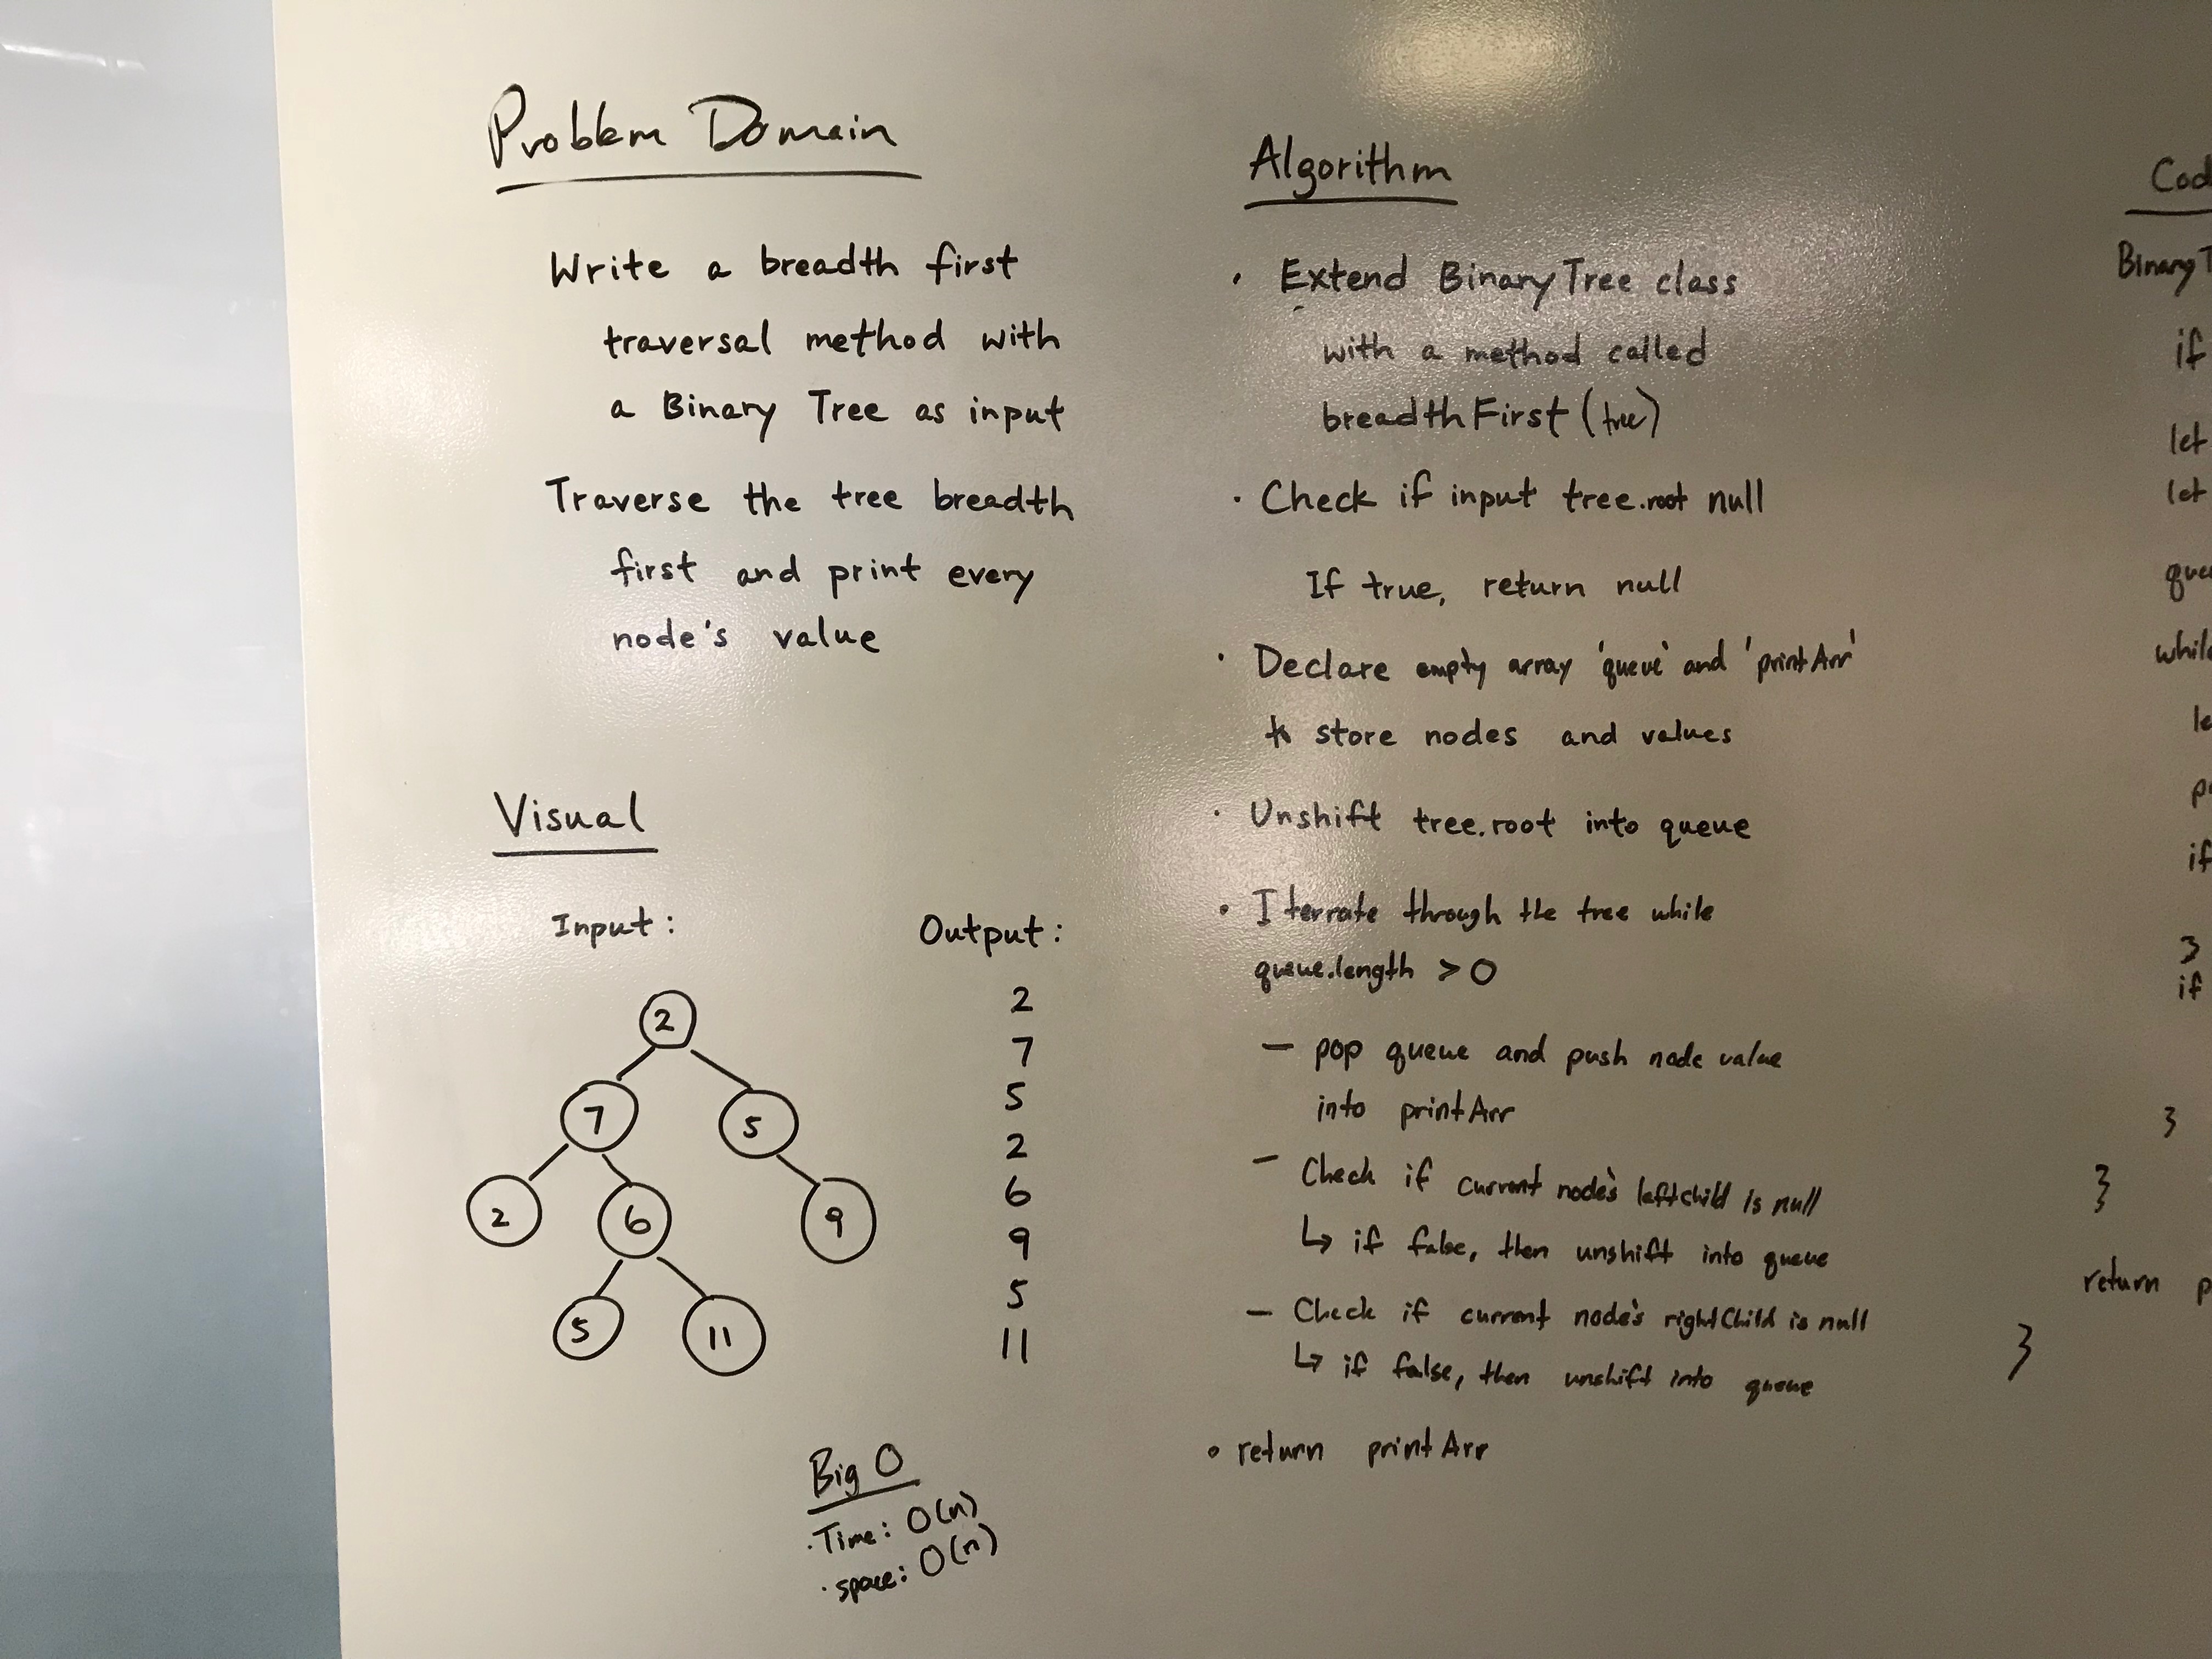 Problem Domain
Write a breadth first
traversal method with
a Binary Tree as input
Traverse the tree breadth
first and print every
node's value
Visual
Input:
Output:
2
7
5
2
6
9
5
11
2
7
5
2
6
9
5
11
Big O
· Time: O(n)
· space: O(n)
Algorithm
· Extend BinaryTree class
with a method called
breadthFirst (tree)
· Check if input tree.root null
If true, return null
· Declare empty array 'queue' and 'printArr'
to store nodes and values
· Unshift tree.root into queue
· Iterrate through the tree while
queue.length > 0
— pop queue and push node value
into printArr
— Check if current node's leftchild is null
↳ if false, then unshift into queue
— Check if current node's rightChild is null
↳ if false, then unshift into queue
• return printArr
Cod
BinaryT
if
let
let
que
while
le
p
if
}
if
}
}
return p
}